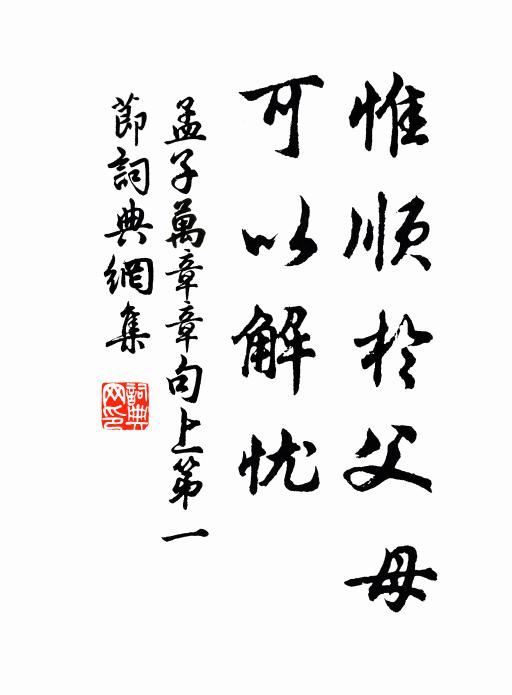 惟顺於父母
可以解忧
孟子萬章章句上第一
節詞典網集
詞典网印